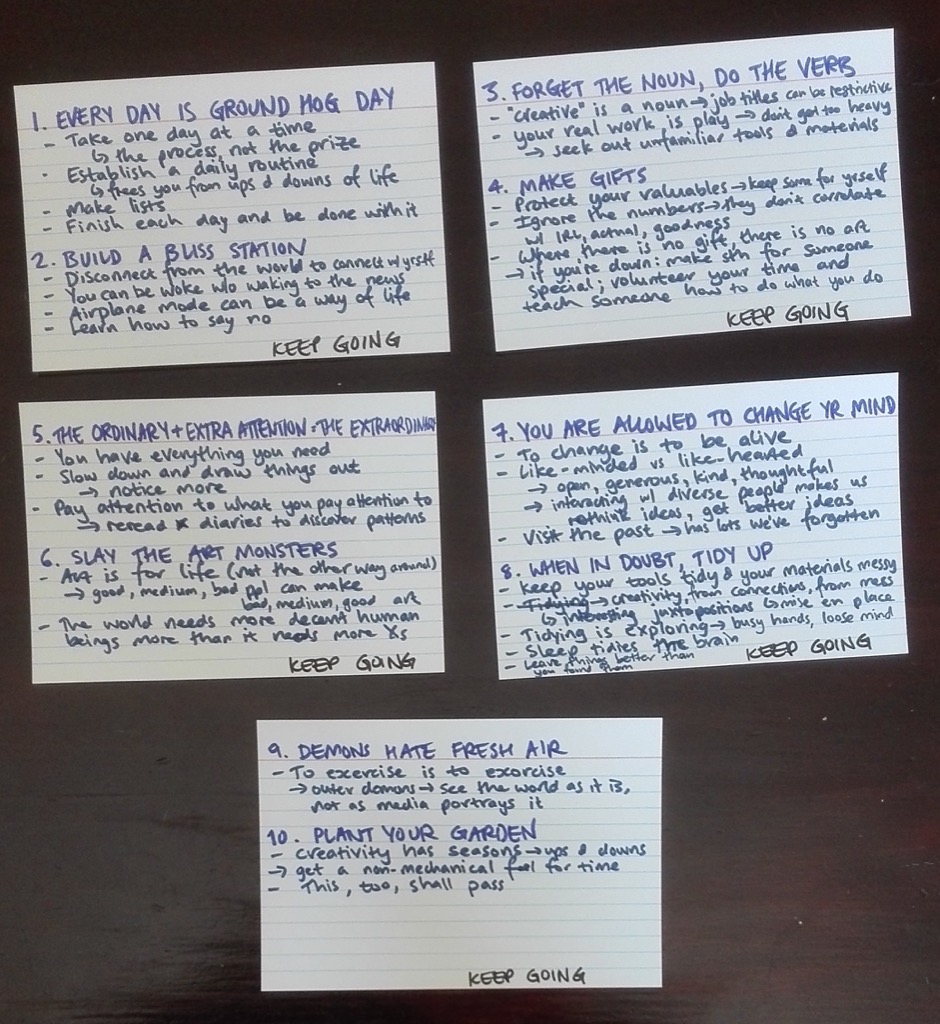 1. EVERY DAY IS GROUND HOG DAY
- Take one day at a time
↳ the process, not the prize
- Establish a daily routine
↳ frees you from ups & downs of life
- Make lists
- Finish each day and be done with it
2. BUILD A BLISS STATION
- Disconnect from the world to connect w/ yrself
- You can be woke w/o waking to the news
- Airplane mode can be a way of life
- Learn how to say no
KEEP GOING
3. FORGET THE NOUN, DO THE VERB
- "creative" is a noun → job titles can be restrictive
- your real work is play → don't get too heavy
→ seek out unfamiliar tools & materials
4. MAKE GIFTS
- Protect your valuables → keep some for yrself
- Ignore the numbers → they don't correlate
w/ IRL, actual, goodness
- Where there is no gift, there is no art
→ if you're down: make sth for someone
special; volunteer your time and
teach someone how to do what you do
KEEP GOING
5. THE ORDINARY + EXTRA ATTENTION = THE EXTRAORDINARY
- You have everything you need
- Slow down and draw things out
→ notice more
- Pay attention to what you pay attention to
→ reread diaries to discover patterns
6. SLAY THE ART MONSTERS
- Art is for life (not the other way around)
→ good, medium, bad ppl can make
bad, medium, good art
- The world needs more decent human
beings more than it needs more Xs
KEEP GOING
7. YOU ARE ALLOWED TO CHANGE YR MIND
- To change is to be alive
- Like-minded vs like-hearted
→ open, generous, kind, thoughtful
→ interacting w/ diverse people makes us
rethink ideas, get better ideas
- Visit the past → has lots we've forgotten
8. WHEN IN DOUBT, TIDY UP
- Keep your tools tidy & your materials messy
- Tidying → creativity, from connections, from mess
↳ interesting juxtapositions ↳ mise en place
- Tidying is exploring → busy hands, loose mind
- Sleep tidies the brain
- Leave things better than
you found them
KEEP GOING
9. DEMONS HATE FRESH AIR
- To exercise is to exorcise
→ outer demons → see the world as it is,
not as media portrays it
10. PLANT YOUR GARDEN
- Creativity has seasons → ups & downs
→ get a non-mechanical feel for time
- This, too, shall pass
KEEP GOING